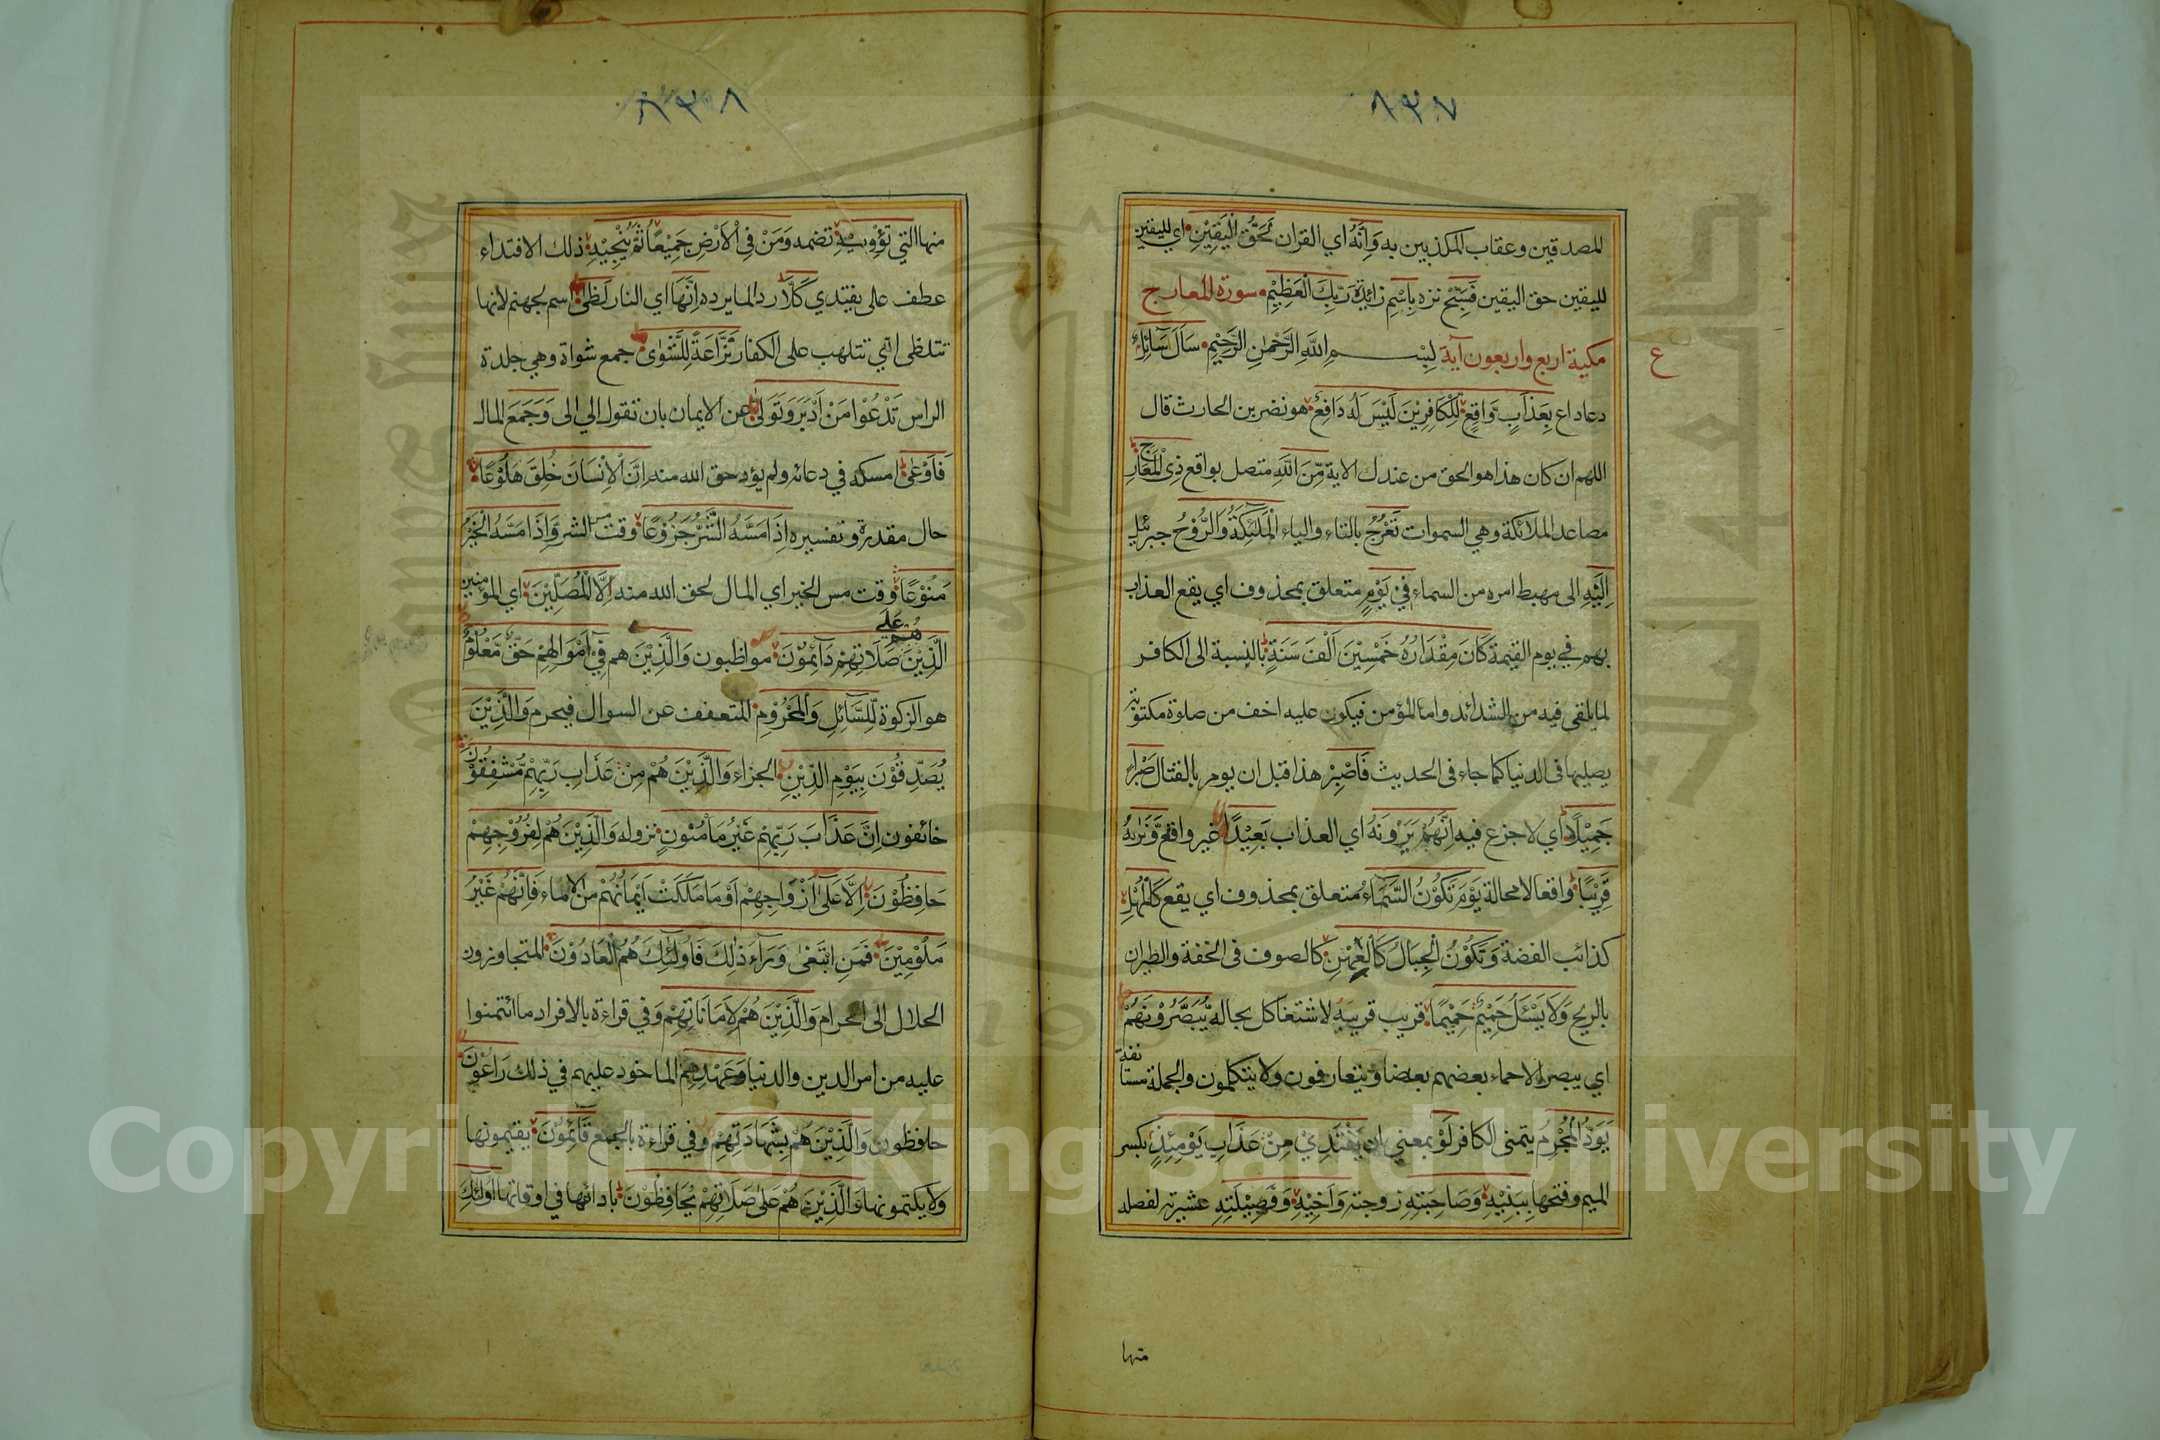 ٨٣٧
للمصدقين وعقاب المكذبين به وَاِنَّهُ اي القران لَحَقُّ الْيَقِيْنِ اي لليقين
لليقين حق اليقين فَسَبِّحْ نزه بِاسْمِ زائدة رَبِّكَ الْعَظِيْمِ سورة المعارج
مكية اربع واربعون آية بِسْمِ اللّٰهِ الرَّحْمٰنِ الرَّحِيْمِ سَاَلَ سَآئِلٌ
ع
دعا داع بِعَذَابٍ وَّاقِعٍ لِّلْكَافِرِيْنَ لَيْسَ لَهٗ دَافِعٌ هو نضر بن الحارث قال
اللهم ان كان هذا هو الحق من عندك الاية مِّنَ اللّٰهِ متصل بواقع ذِى الْمَعَارِجِ
مصاعد الملائكة وهي السموات تَعْرُجُ بالتاء والياء الْمَلٰٓئِكَةُ وَالرُّوْحُ جبرئيل
اِلَيْهِ الى مهبط امره من السماء فِيْ يَوْمٍ متعلق بمحذوف اي يقع العذاب
بهم في يوم القيمة كَانَ مِقْدَارُهٗ خَمْسِيْنَ اَلْفَ سَنَةٍ بالنسبة الى الكافر
لما يلقى فيه من الشدائد واما المؤمن فيكون عليه اخف من صلوة مكتوبة
يصليها فى الدنيا كما جاء فى الحديث فَاصْبِرْ هذا قبل ان يومر بالقتال صَبْرًا
جَمِيْلًا اي لا جزع فيه اِنَّهُمْ يَرَوْنَهٗ اي العذاب بَعِيْدًا غير واقع وَّنَرٰىهُ
قَرِيْبًا واقعا لا محالة يَوْمَ تَكُوْنُ السَّمَآءُ متعلق بمحذوف اي يقع كَالْمُهْلِ
كذائب الفضة وَتَكُوْنُ الْجِبَالُ كَالْعِهْنِ كالصوف فى الخفة والطيران
بالريح وَلَا يَسْئَلُ حَمِيْمٌ حَمِيْمًا قريب قريبه لاشتغال كل بحاله يُّبَصَّرُوْنَهُمْ
اي يبصر الاحماء بعضهم بعضا ويتعارفون ولا يتكلمون والجملة مستانفة
يَوَدُّ الْمُجْرِمُ يتمنى الكافر لَوْ بمعنى ان يَفْتَدِيْ مِنْ عَذَابِ يَوْمِئِذٍ بكسر
الميم وفتحها بِبَنِيْهِ وَصَاحِبَتِهٖ زوجته وَاَخِيْهِ وَفَصِيْلَتِهِ عشيرته لفصله
منها
٨٣٨
منها الَّتِيْ تُؤْوِيْهِ تضمه وَمَنْ فِى الْاَرْضِ جَمِيْعًا ثُمَّ يُنْجِيْهِ ذلك الافتداء
عطف على يفتدي كَلَّا رد لما يرده اِنَّهَا اي النار لَظٰى اسم لجهنم لانها
تتلظى اي تتلهب على الكفار نَزَّاعَةً لِّلشَّوٰى جمع شواة وهي جلدة
الراس تَدْعُوْا مَنْ اَدْبَرَ وَتَوَلّٰى عن الايمان بان تقول الي الى وَجَمَعَ المال
فَاَوْعٰى امسكه في دعائه ولم يؤد حق الله منه اِنَّ الْاِنْسَانَ خُلِقَ هَلُوْعًا
حال مقدرة وتفسيره اِذَا مَسَّهُ الشَّرُّ جَزُوْعًا وقت مس الشر وَّاِذَا مَسَّهُ الْخَيْرُ
مَنُوْعًا وقت مس الخير اي المال لحق الله منه اِلَّا الْمُصَلِّيْنَ اي المؤمنين
الَّذِيْنَ هُمْ عَلٰى صَلَاتِهِمْ دَآئِمُوْنَ مواظبون وَالَّذِيْنَ هم فِيْٓ اَمْوَالِهِمْ حَقٌّ مَّعْلُوْمٌ
هو الزكوة لِّلسَّآئِلِ وَالْمَحْرُوْمِ المتعفف عن السوال فيحرم وَالَّذِيْنَ
يُصَدِّقُوْنَ بِيَوْمِ الدِّيْنِ الجزاء وَالَّذِيْنَ هُمْ مِنْ عَذَابِ رَبِّهِمْ مُّشْفِقُوْنَ
خائفون اِنَّ عَذَابَ رَبِّهِمْ غَيْرُ مَاْمُوْنٍ نزوله وَالَّذِيْنَ هُمْ لِفُرُوْجِهِمْ
حَافِظُوْنَ اِلَّا عَلٰٓى اَزْوَاجِهِمْ اَوْ مَا مَلَكَتْ اَيْمَانُهُمْ من الاماء فَاِنَّهُمْ غَيْرُ
مَلُوْمِيْنَ فَمَنِ ابْتَغٰى وَرَآءَ ذٰلِكَ فَاُولٰٓئِكَ هُمُ الْعَادُوْنَ المتجاوزون
الحلال الى الحرام وَالَّذِيْنَ هُمْ لِاَمَانَاتِهِمْ وفي قراءة بالافراد ما ائتمنوا
عليه من امر الدين والدنيا وَعَهْدِهِمْ الماخوذ عليهم في ذلك رَاعُوْنَ
حافظون وَالَّذِيْنَ هُمْ بِشَهَادَتِهِمْ وفي قراءة بالجمع قَآئِمُوْنَ يقيمونها
ولا يكتمونها وَالَّذِيْنَ هُمْ عَلٰى صَلَاتِهِمْ يُحَافِظُوْنَ بادائها في اوقاتها اُولٰٓئِكَ
Copyright © King Saud University